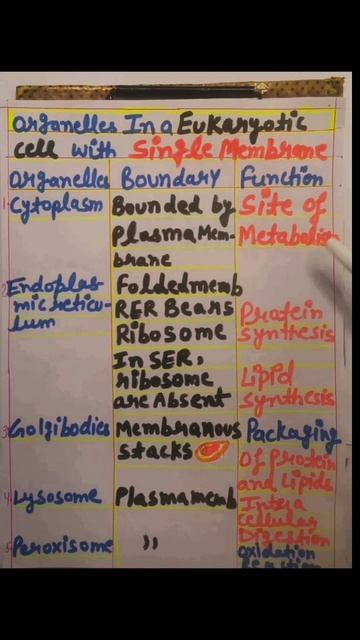 Organelles In a Eukaryotic
cell with Single Membrane
Organelles Boundary Function
1. Cytoplasm Bounded by Site of
Plasma Mem- Metabolism
brane
2. Endoplas- Folded memb
mic reticu- RER Bears Protein
lum Ribosome synthesis
In SER,
ribosome Lipid
are Absent synthesis
3. Golgibodies Membranous Packaging
stacks Of Protein
and Lipids
4. Lysosome Plasma memb Intera
cellular
Digestion
5. Peroxisome ,, oxidation